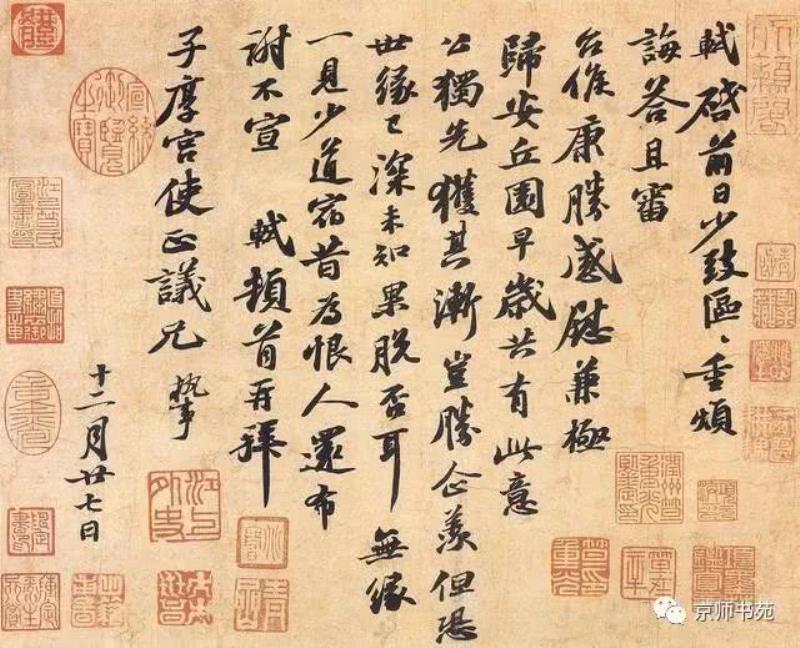 軾啓前日少致區〻重煩
誨荅且審
台候康勝感慰兼極
歸安丘園早歲共有此意
公獨先獲其漸豈勝企羨但恐
世緣已深未知果脫否耳無緣
一見少道宿昔為恨人還布
謝不宣　軾頓首再拜
子厚宮使正議兄執事
十二月廿七日
宣統御覽之寶
江上外史
京师书苑